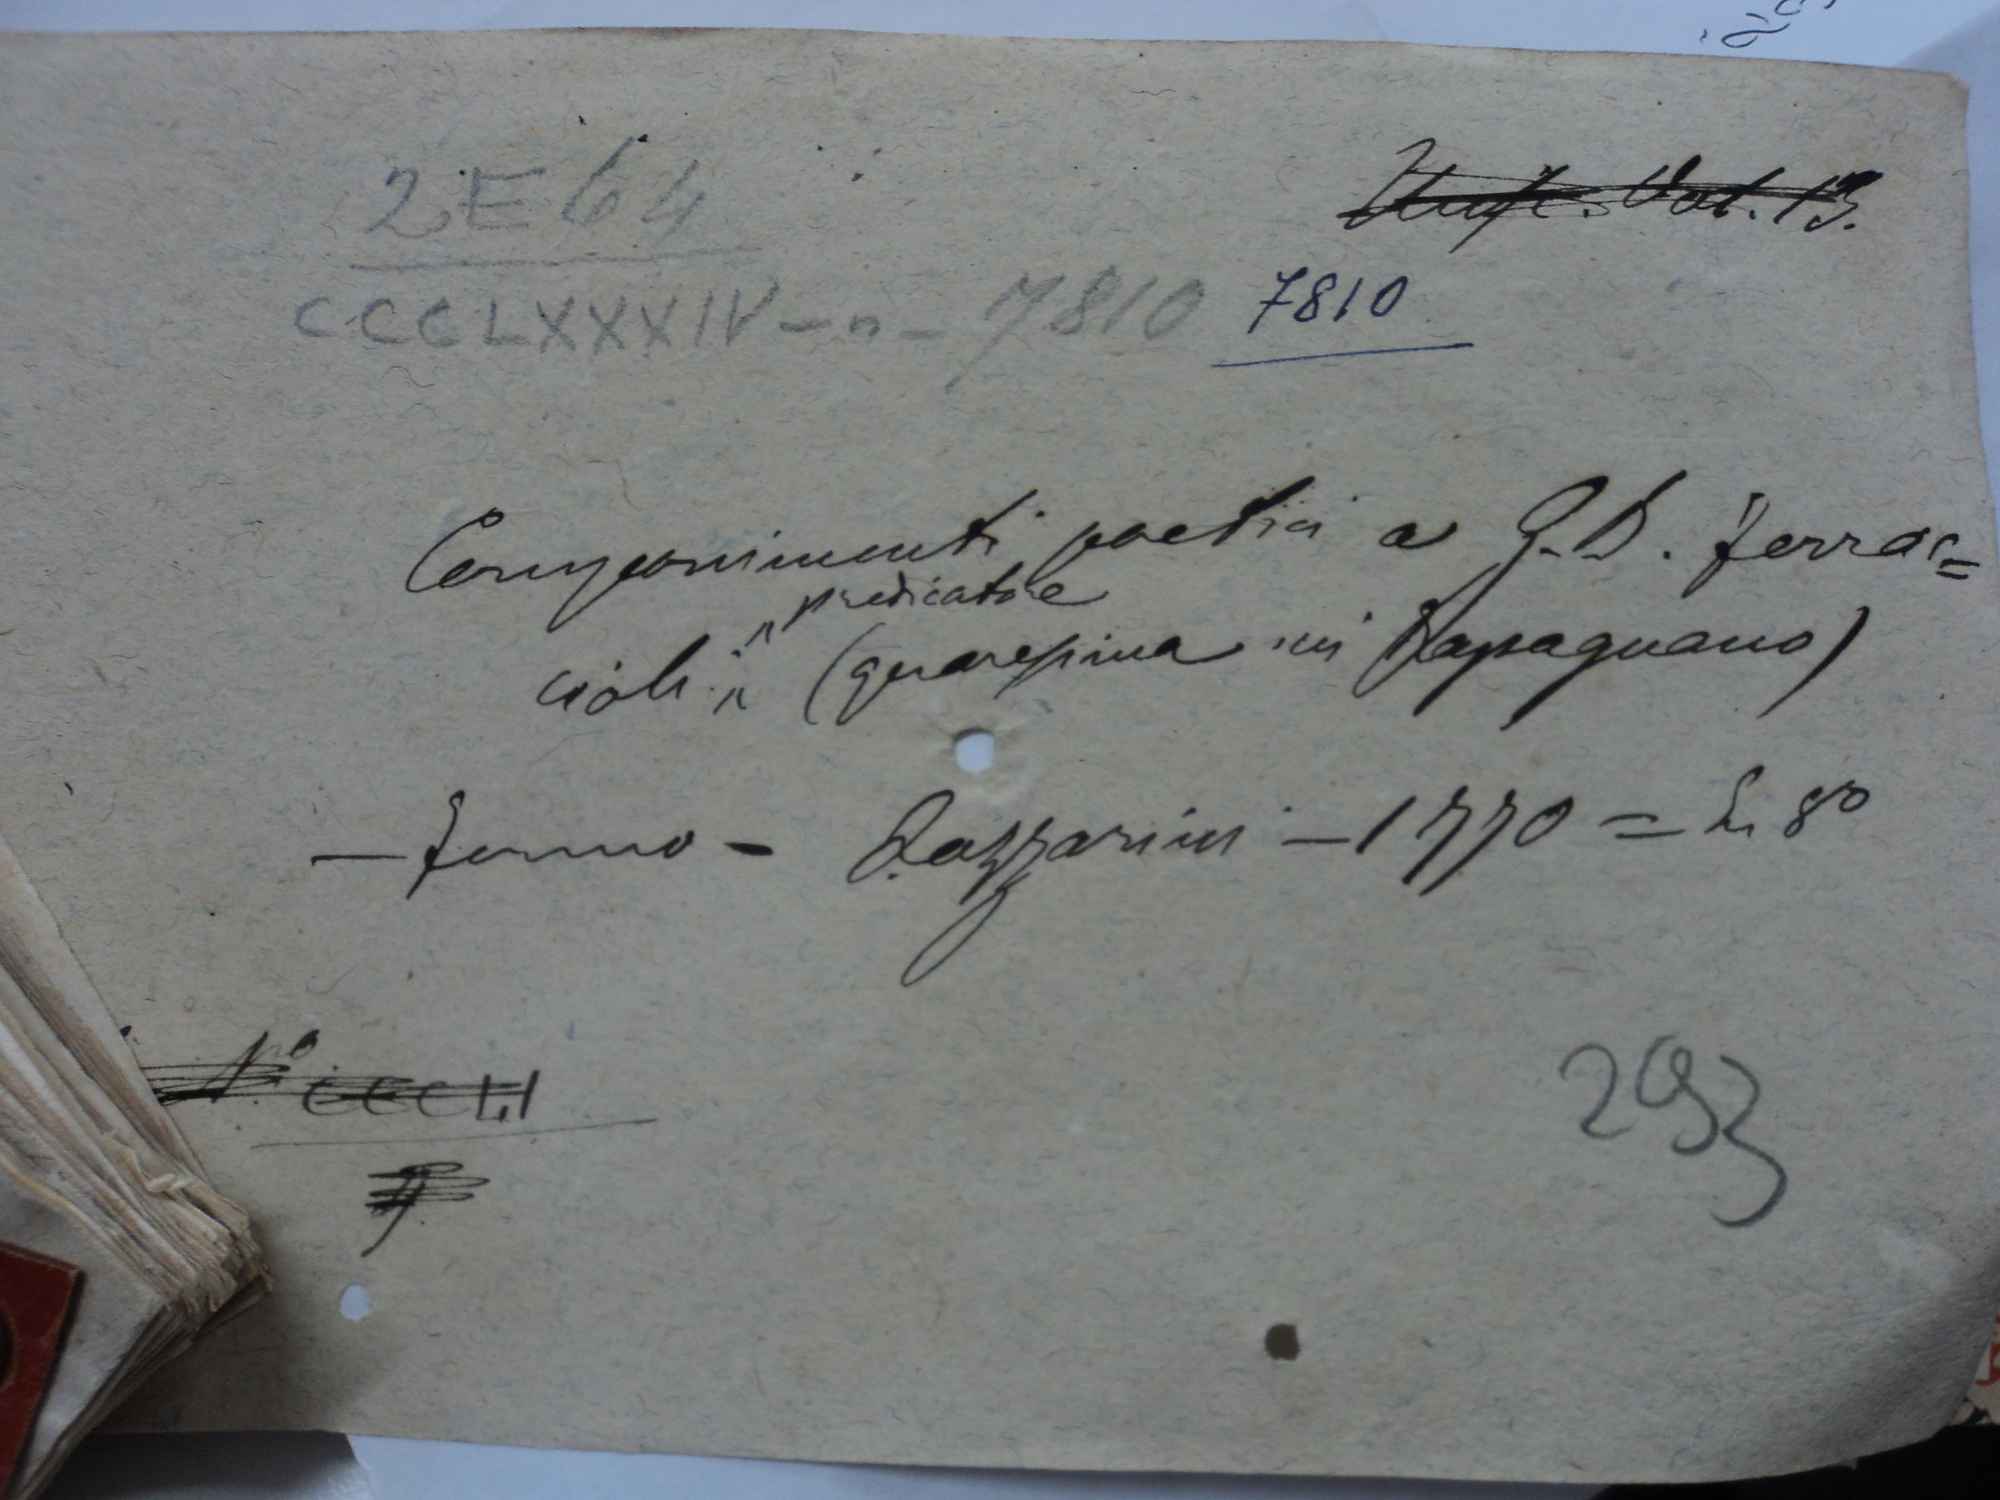 2E64
Vol. 13.
CCCLXXXIV - n - 7810 7810
Componimenti poetici a G. B. Ferrac=
cioli predicatore
(quaresima in Rapagnano)
- Fermo - Lazzarini - 1770 = In 8°
N° CCCLI
293